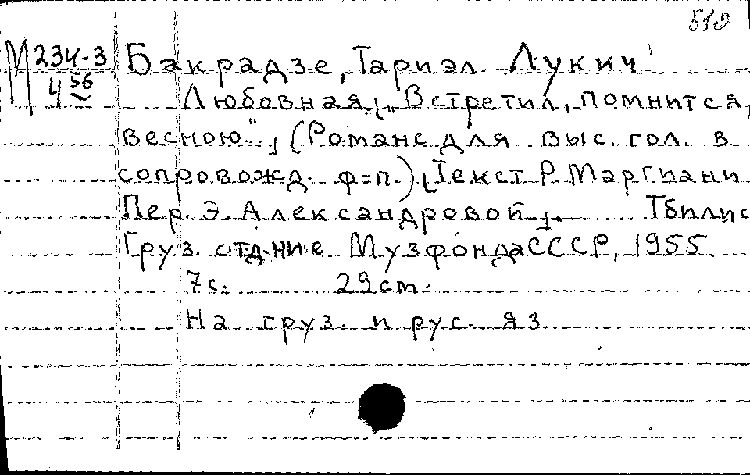 519
М 234-3 Бакрадзе, Тариэл Лукич
4 56 Любовная. „Встретил, помнится,
весною". (Романс для выс. гол. в
сопровожд. ф-п.) [Текст Р. Маргиани
Пер. Э. Александровой]. Тбилис
Груз. отд-ние Музфонда СССР, 1955
7с. 29см.
На груз. и рус. яз